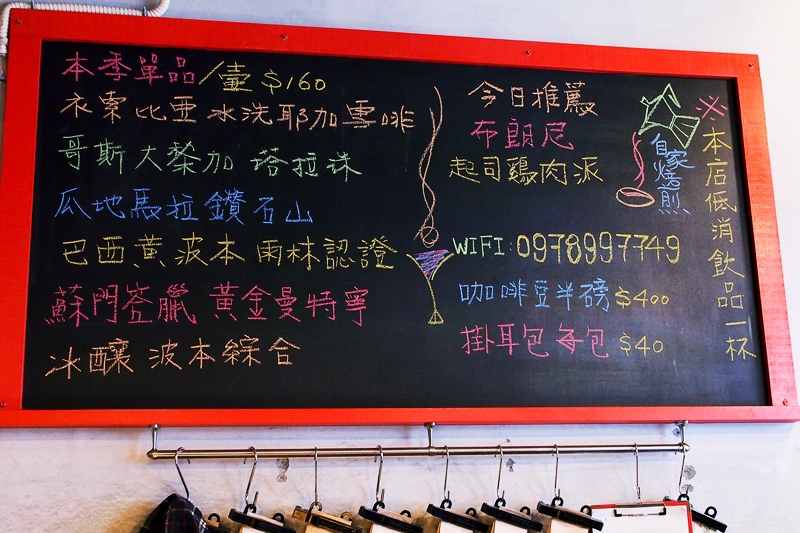 本季單品/壺 $160
衣索比亞 水洗耶加雪啡
哥斯大黎加 塔拉珠
瓜地馬拉鑽石山
巴西黃波本 雨林認證
蘇門答臘 黃金曼特寧
冰釀 波本綜合
今日推薦
布朗尼
起司雞肉派
WIFI:0978997749
咖啡豆半磅$400
掛耳包每包 $40
自家烘煎
※本店低消飲品一杯